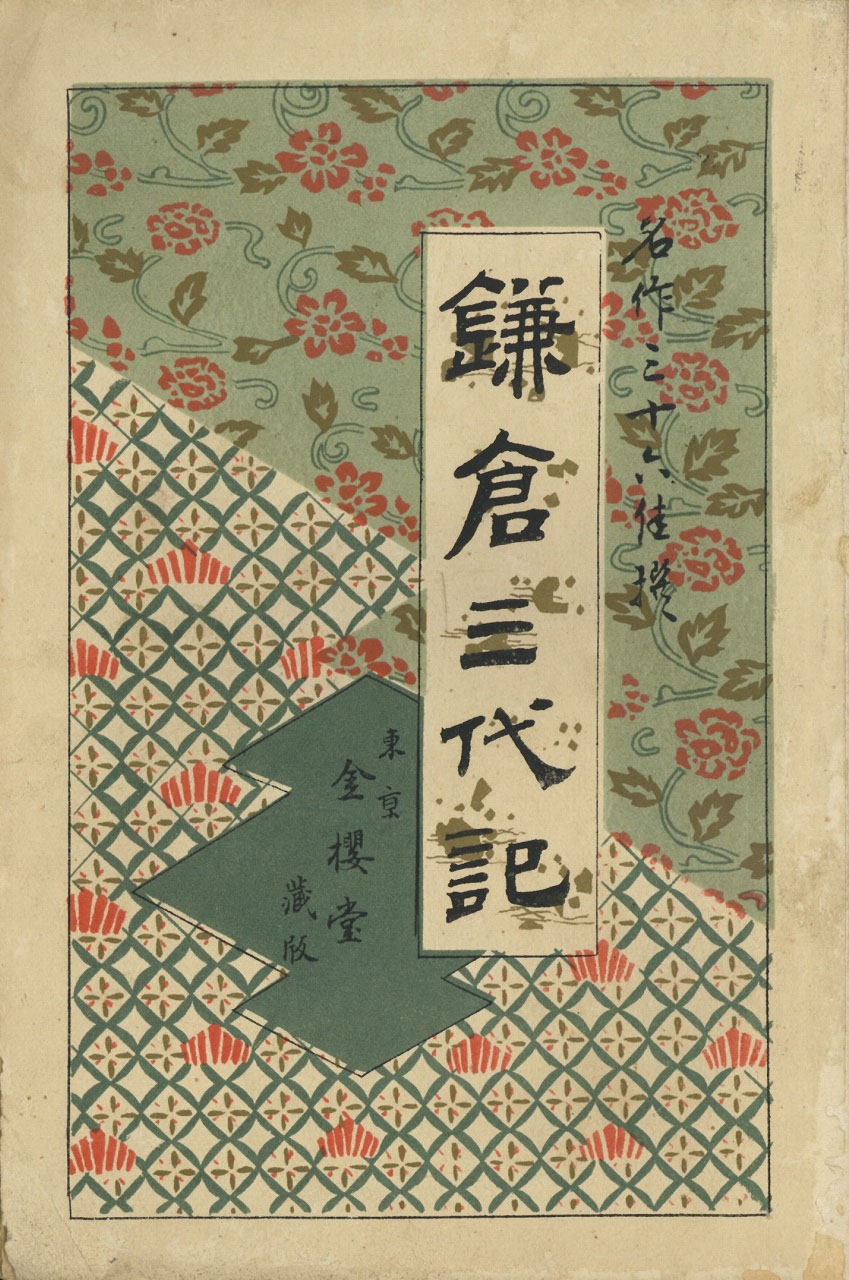 名作三十六佳撰
鎌倉三代記
東京
金櫻堂
藏版